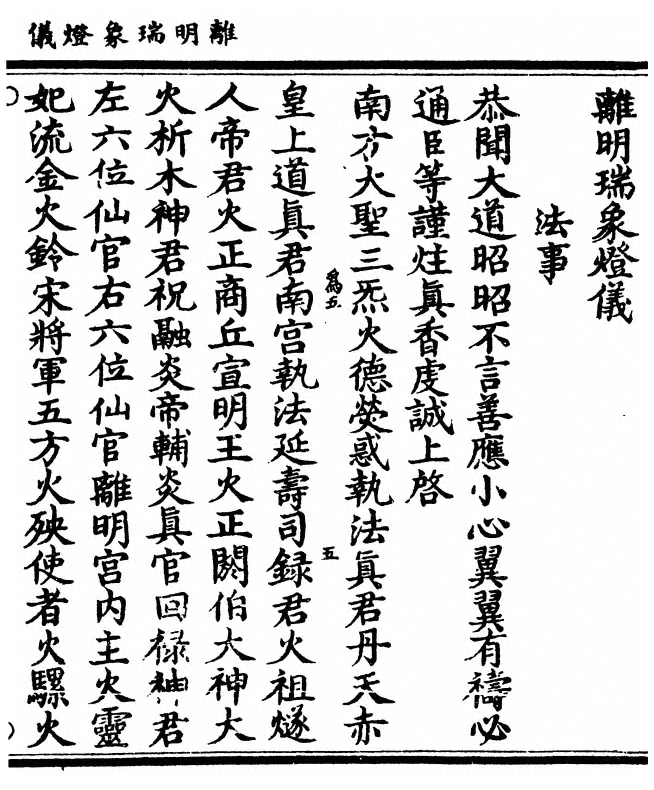 離明瑞象燈儀
離明瑞象燈儀
法事
恭聞大道昭昭不言善應小心翼翼有禱必
通臣等謹炷眞香虔誠上啓
南方大聖三炁火德熒惑執法眞君丹天赤
爲五
五
皇上道眞君南宮執法延壽司録君火祖燧
人帝君火正商丘宣明王火正閼伯大神大
火析木神君祝融炎帝輔炎眞官回祿神君
左六位仙官右六位仙官離明宮内主火靈
妃流金火鈴宋將軍五方火殃使者火騾火